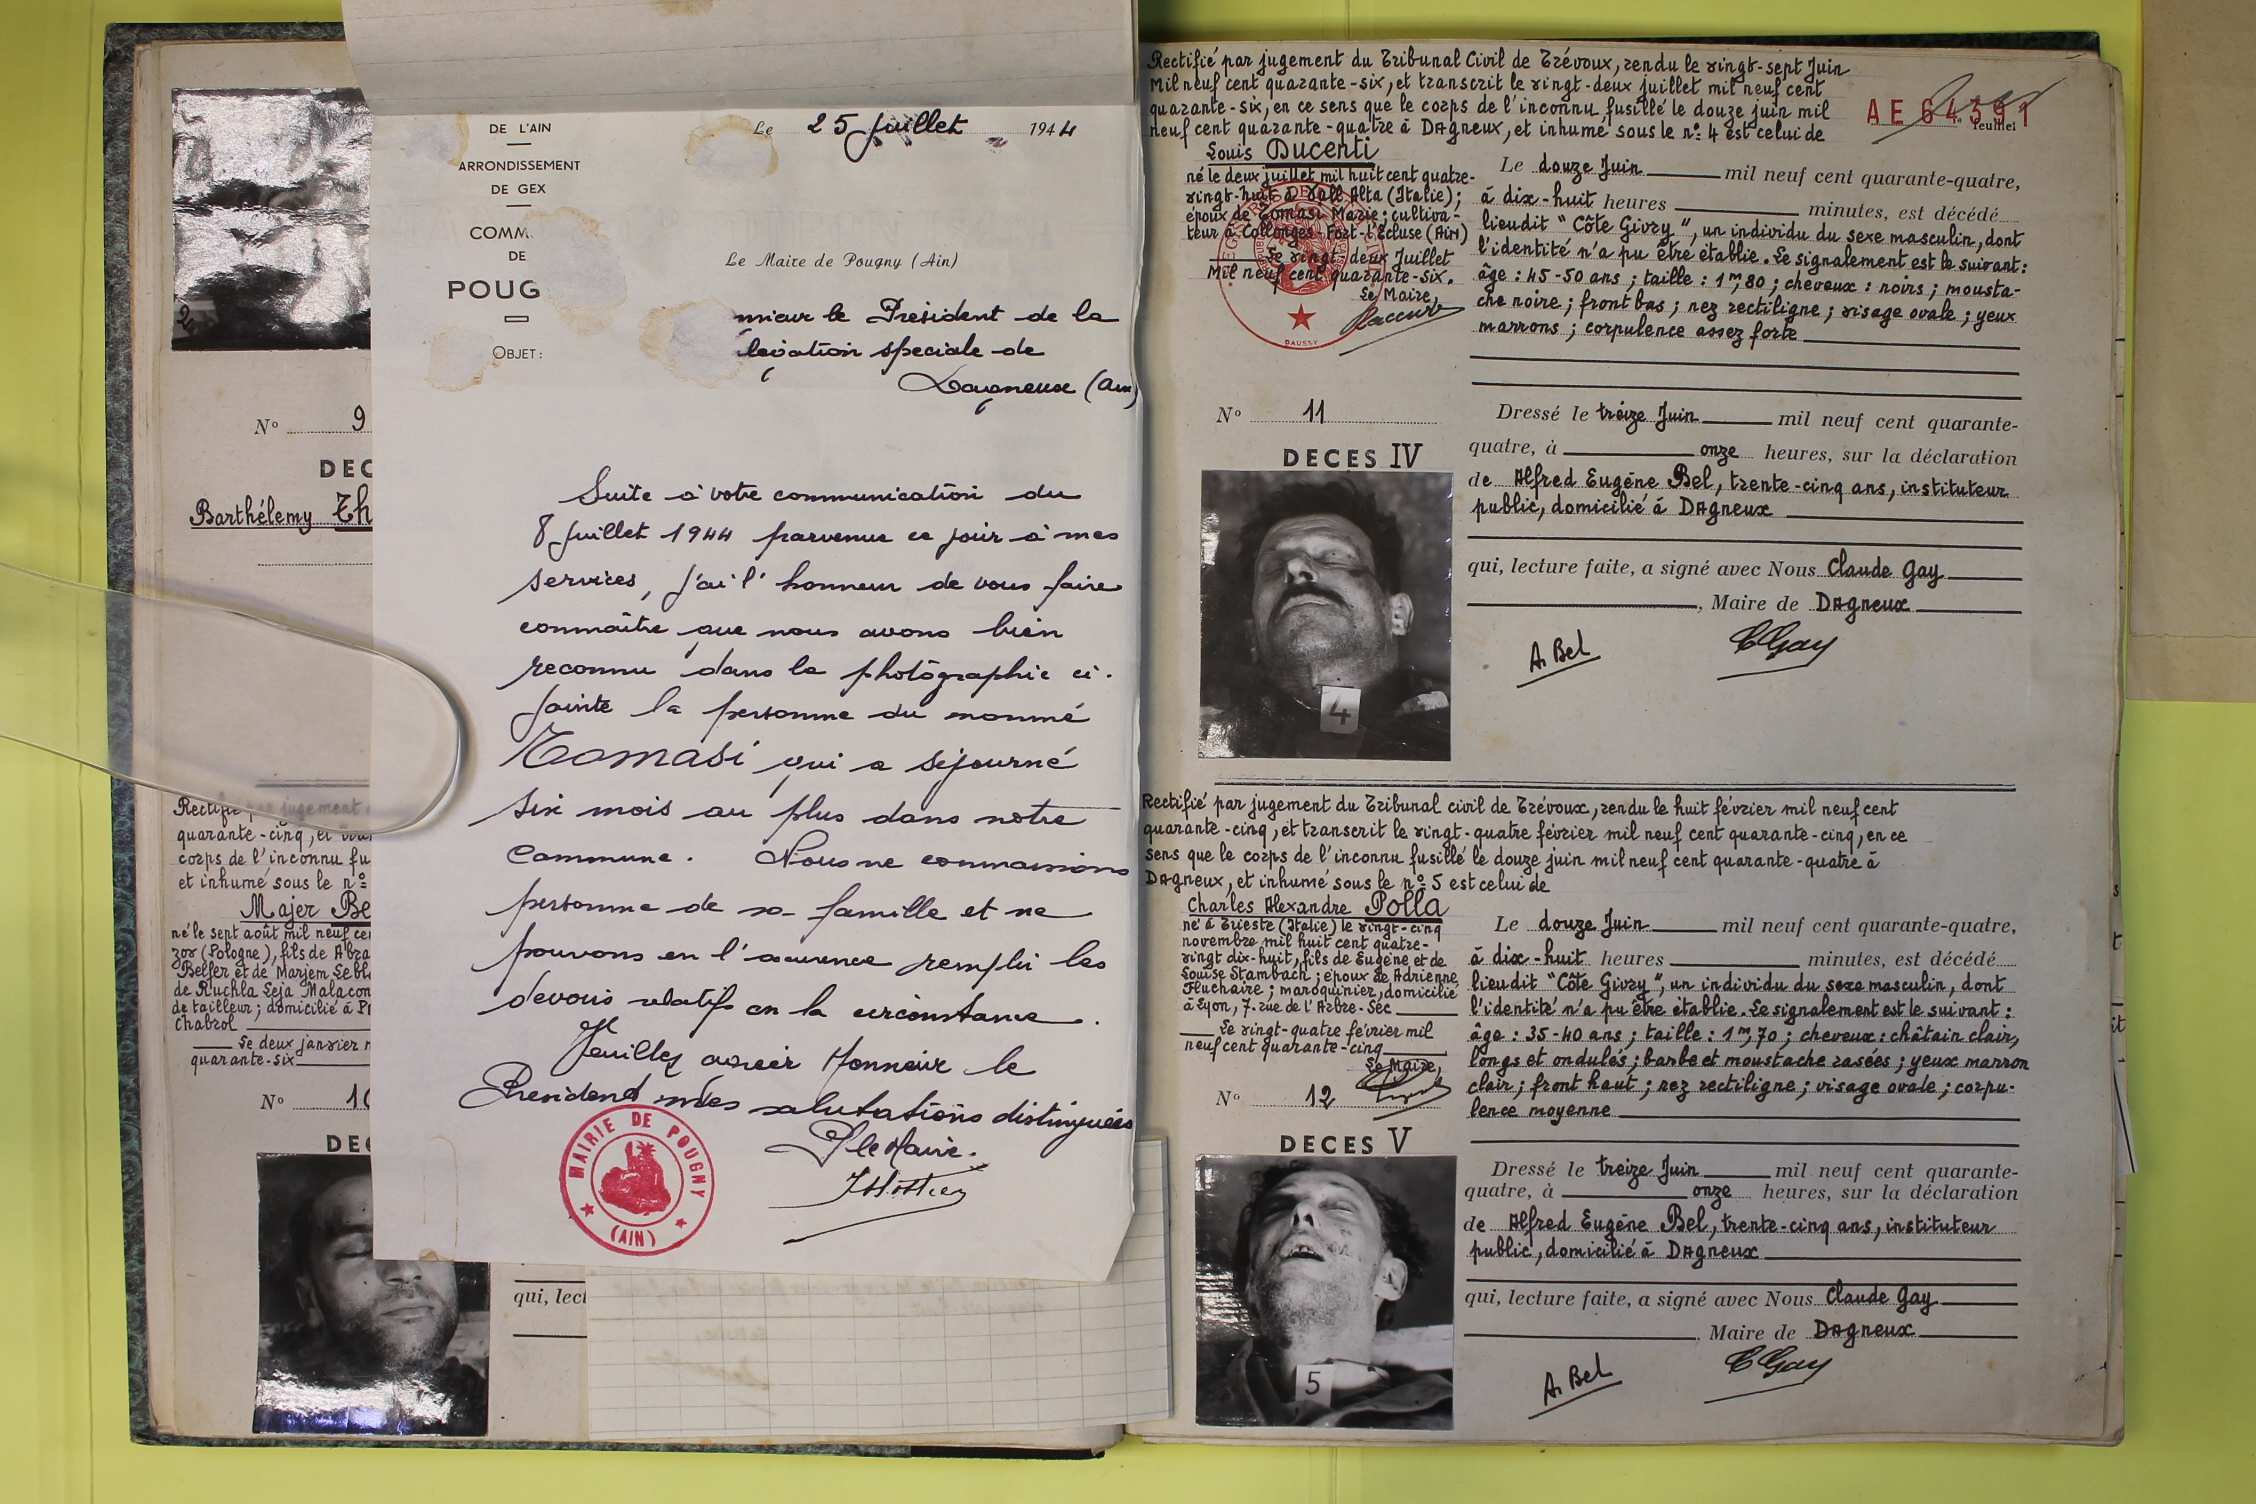 2
Nº 9
DEC
Barthélemy Th
Rectifié par jugement
quarante-cinq, et
corps de l'inconnu fu
et inhumé sous le nº
Majer Be
né le sept août mil neuf ce
zor (Pologne), fils de Abra
Belfer et de Marjem Lebl
de Ruchla Leja Malacon
de tailleur; domicilié à P
Chabrol
Le deux janvier
quarante-six
Nº 10
DEC
qui, lect
DE L'AIN
ARRONDISSEMENT
DE GEX
COMM
DE
POUG
OBJET :
Le 25 Juillet 1944
Le Maire de Pougny (Ain)
nsieur le Président de la
légation speciale de
Dagneux (Ain)
Suite à votre communication du
8 Juillet 1944 parvenue ce jour à mes
services, j'ai l'honneur de vous faire
connaître que nous avons bien
reconnu dans la photographie ci-
jointe la personne du nommé
Tomasi qui a séjourné
six mois au plus dans notre
commune. Nous ne connaissions
personne de sa famille et ne
pouvons en l'occurence remplir les
devoirs relatifs en la circonstance.
Veuillez agréer Monsieur le
Président mes salutations distinguées
P le Maire.
MAIRIE DE POUGNY
(AIN)
Rectifié par jugement du Tribunal Civil de Trévoux, rendu le vingt-sept Juin
Mil neuf cent quarante-six, et transcrit le vingt-deux juillet mil neuf cent
quarante-six, en ce sens que le corps de l'inconnu, fusillé le douze juin mil
neuf cent quarante-quatre à Dagneux, et inhumé sous le nº 4 est celui de
AE 64391
feuillet
Louis Ducenti
né le deux juillet mil huit cent quatre-
vingt-huit à Vall Alta (Italie);
époux de Tomasi Marie; cultiva-
teur à Collonges-Fort-l'Ecluse (Ain)
Le vingt-deux Juillet
Mil neuf cent quarante-six.
Le Maire,
DAUSSY
Le douze Juin mil neuf cent quarante-quatre,
à dix-huit heures minutes, est décédé
lieudit "Côte Givry", un individu du sexe masculin, dont
l'identité n'a pu être établie. Le signalement est le suivant:
âge : 45-50 ans ; taille : 1m,80 ; cheveux : noirs ; mousta-
che noire ; front bas ; nez rectiligne ; visage ovale ; yeux
marrons ; corpulence assez forte
Nº 11
DECES IV
4
Dressé le treize Juin mil neuf cent quarante-
quatre, à onze heures, sur la déclaration
de Alfred Eugène Bel, trente-cinq ans, instituteur
public, domicilié à Dagneux
qui, lecture faite, a signé avec Nous Claude Gay
, Maire de Dagneux
A. Bel
C Gay
Rectifié par jugement du Tribunal civil de Trévoux, rendu le huit février mil neuf cent
quarante-cinq, et transcrit le vingt-quatre février mil neuf cent quarante-cinq, en ce
sens que le corps de l'inconnu fusillé le douze juin mil neuf cent quarante-quatre à
Dagneux, et inhumé sous le nº 5 est celui de
Charles Alexandre Polla
né à Trieste (Italie) le vingt-cinq
novembre mil huit cent quatre-
vingt dix-huit, fils de Eugène et de
Louise Stambach ; époux de Adrienne
Fluchaire ; maroquinier, domicilié
à Lyon, 7. rue de l'Arbre-Sec
Le vingt-quatre février mil
neuf cent quarante-cinq
Le Maire,
Le douze Juin mil neuf cent quarante-quatre,
à dix-huit heures minutes, est décédé
lieudit "Côte Givry", un individu du sexe masculin, dont
l'identité n'a pu être établie. Le signalement est le suivant :
âge : 35-40 ans ; taille : 1m,70 ; cheveux : châtain clair,
longs et ondulés ; barbe et moustache rasées ; yeux marron
clair ; front haut ; nez rectiligne ; visage ovale ; corpu-
lence moyenne
Nº 12
DECES V
5
Dressé le treize Juin mil neuf cent quarante-
quatre, à onze heures, sur la déclaration
de Alfred Eugène Bel, trente-cinq ans, instituteur
public, domicilié à Dagneux
qui, lecture faite, a signé avec Nous Claude Gay
, Maire de Dagneux
A. Bel
C Gay